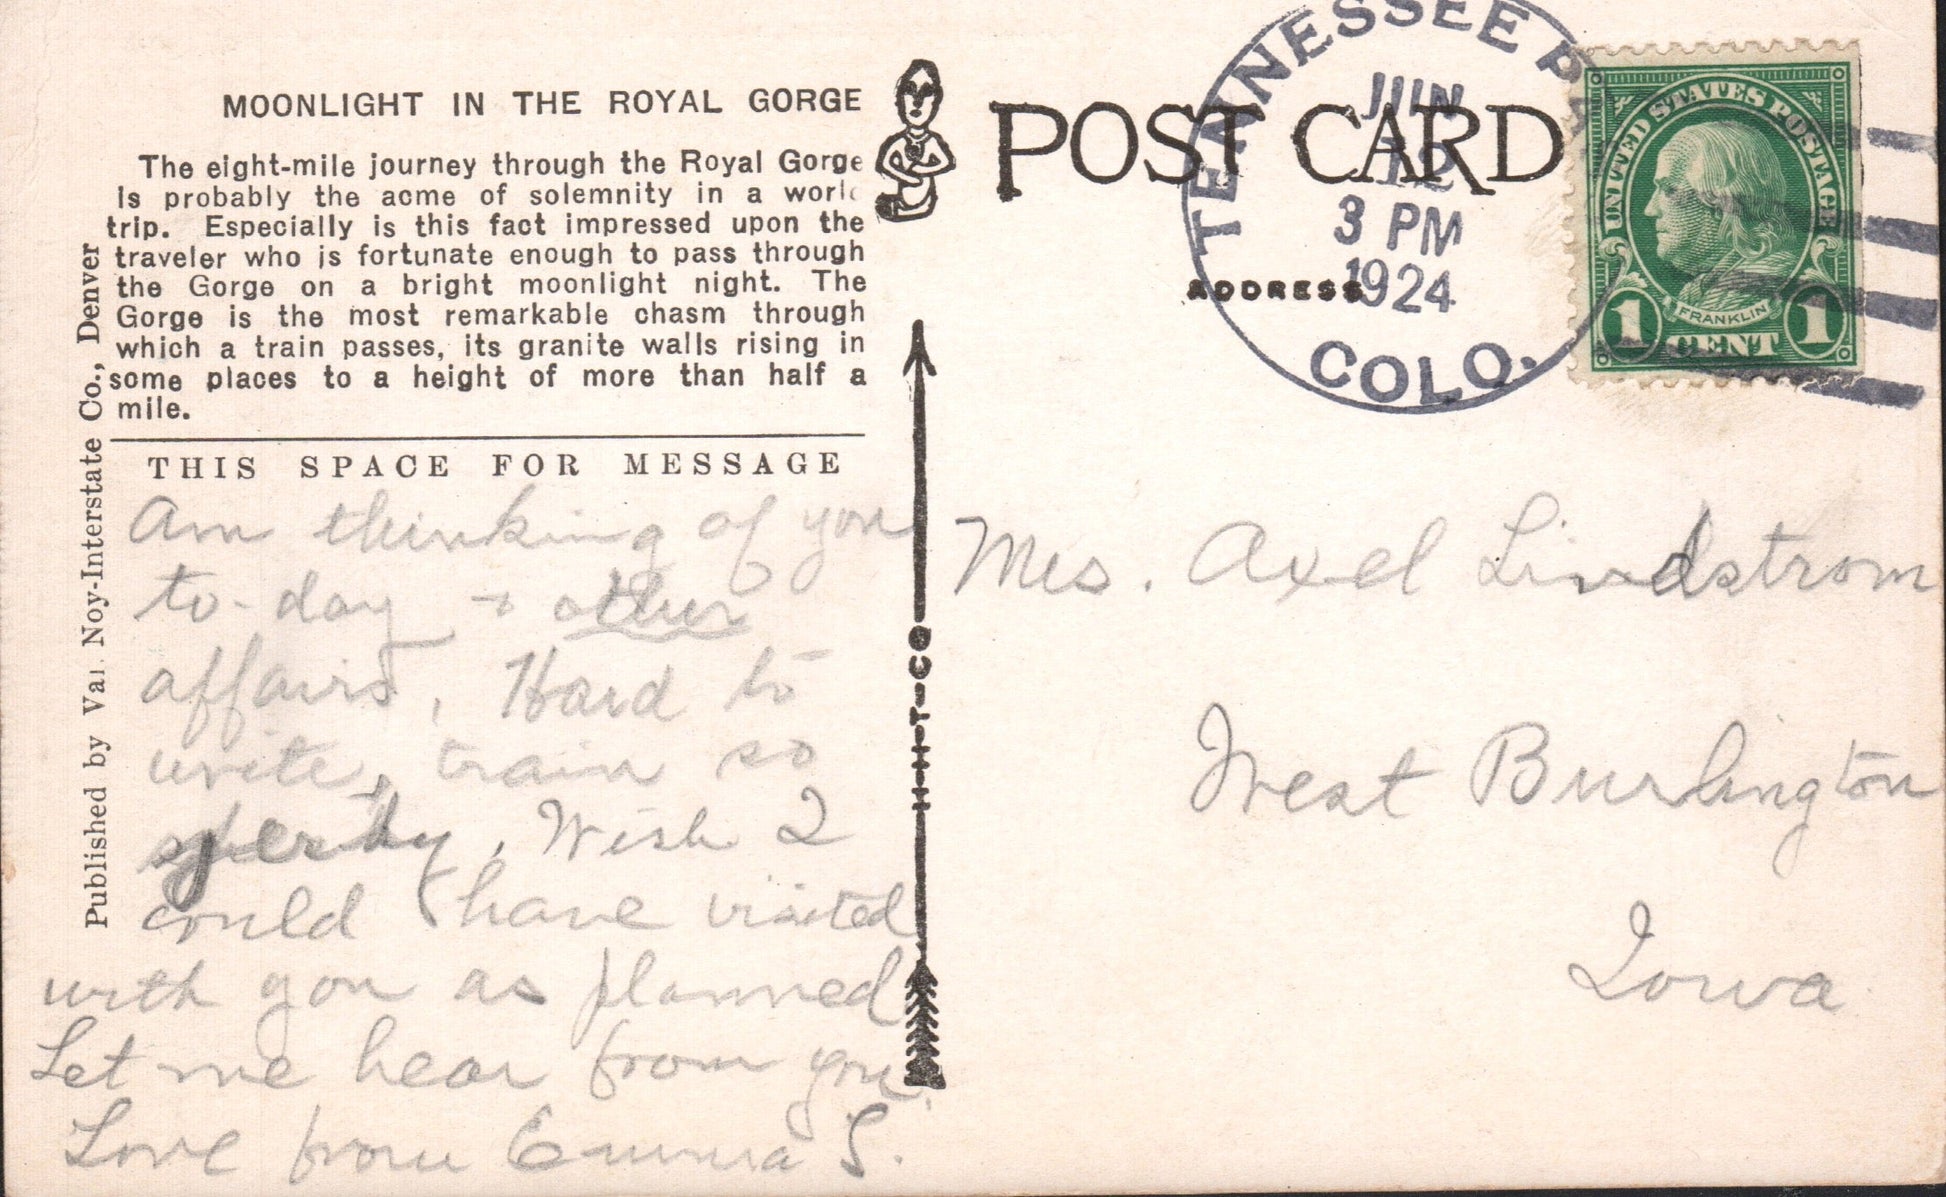 MOONLIGHT IN THE ROYAL GORGE
The eight-mile journey through the Royal Gorge
is probably the acme of solemnity in a world
trip. Especially is this fact impressed upon the
traveler who is fortunate enough to pass through
the Gorge on a bright moonlight night. The
Gorge is the most remarkable chasm through
which a train passes, its granite walls rising in
some places to a height of more than half a
mile.
THIS SPACE FOR MESSAGE
Am thinking of you
to-day + other
affairs. Hard to
write, train so
jerky. Wish I
could have visited
with you as planned
Let me hear from you.
Love from Emma S.
Published by Val Noy-Interstate Co., Denver
H-H-T-CO
POST CARD
ADDRESS
TENNESSEE PA
JUN
12
3 PM
1924
COLO.
UNITED STATES POSTAGE
FRANKLIN
1 CENT 1
Mrs. Axel Lindstrom
West Burlington
Iowa